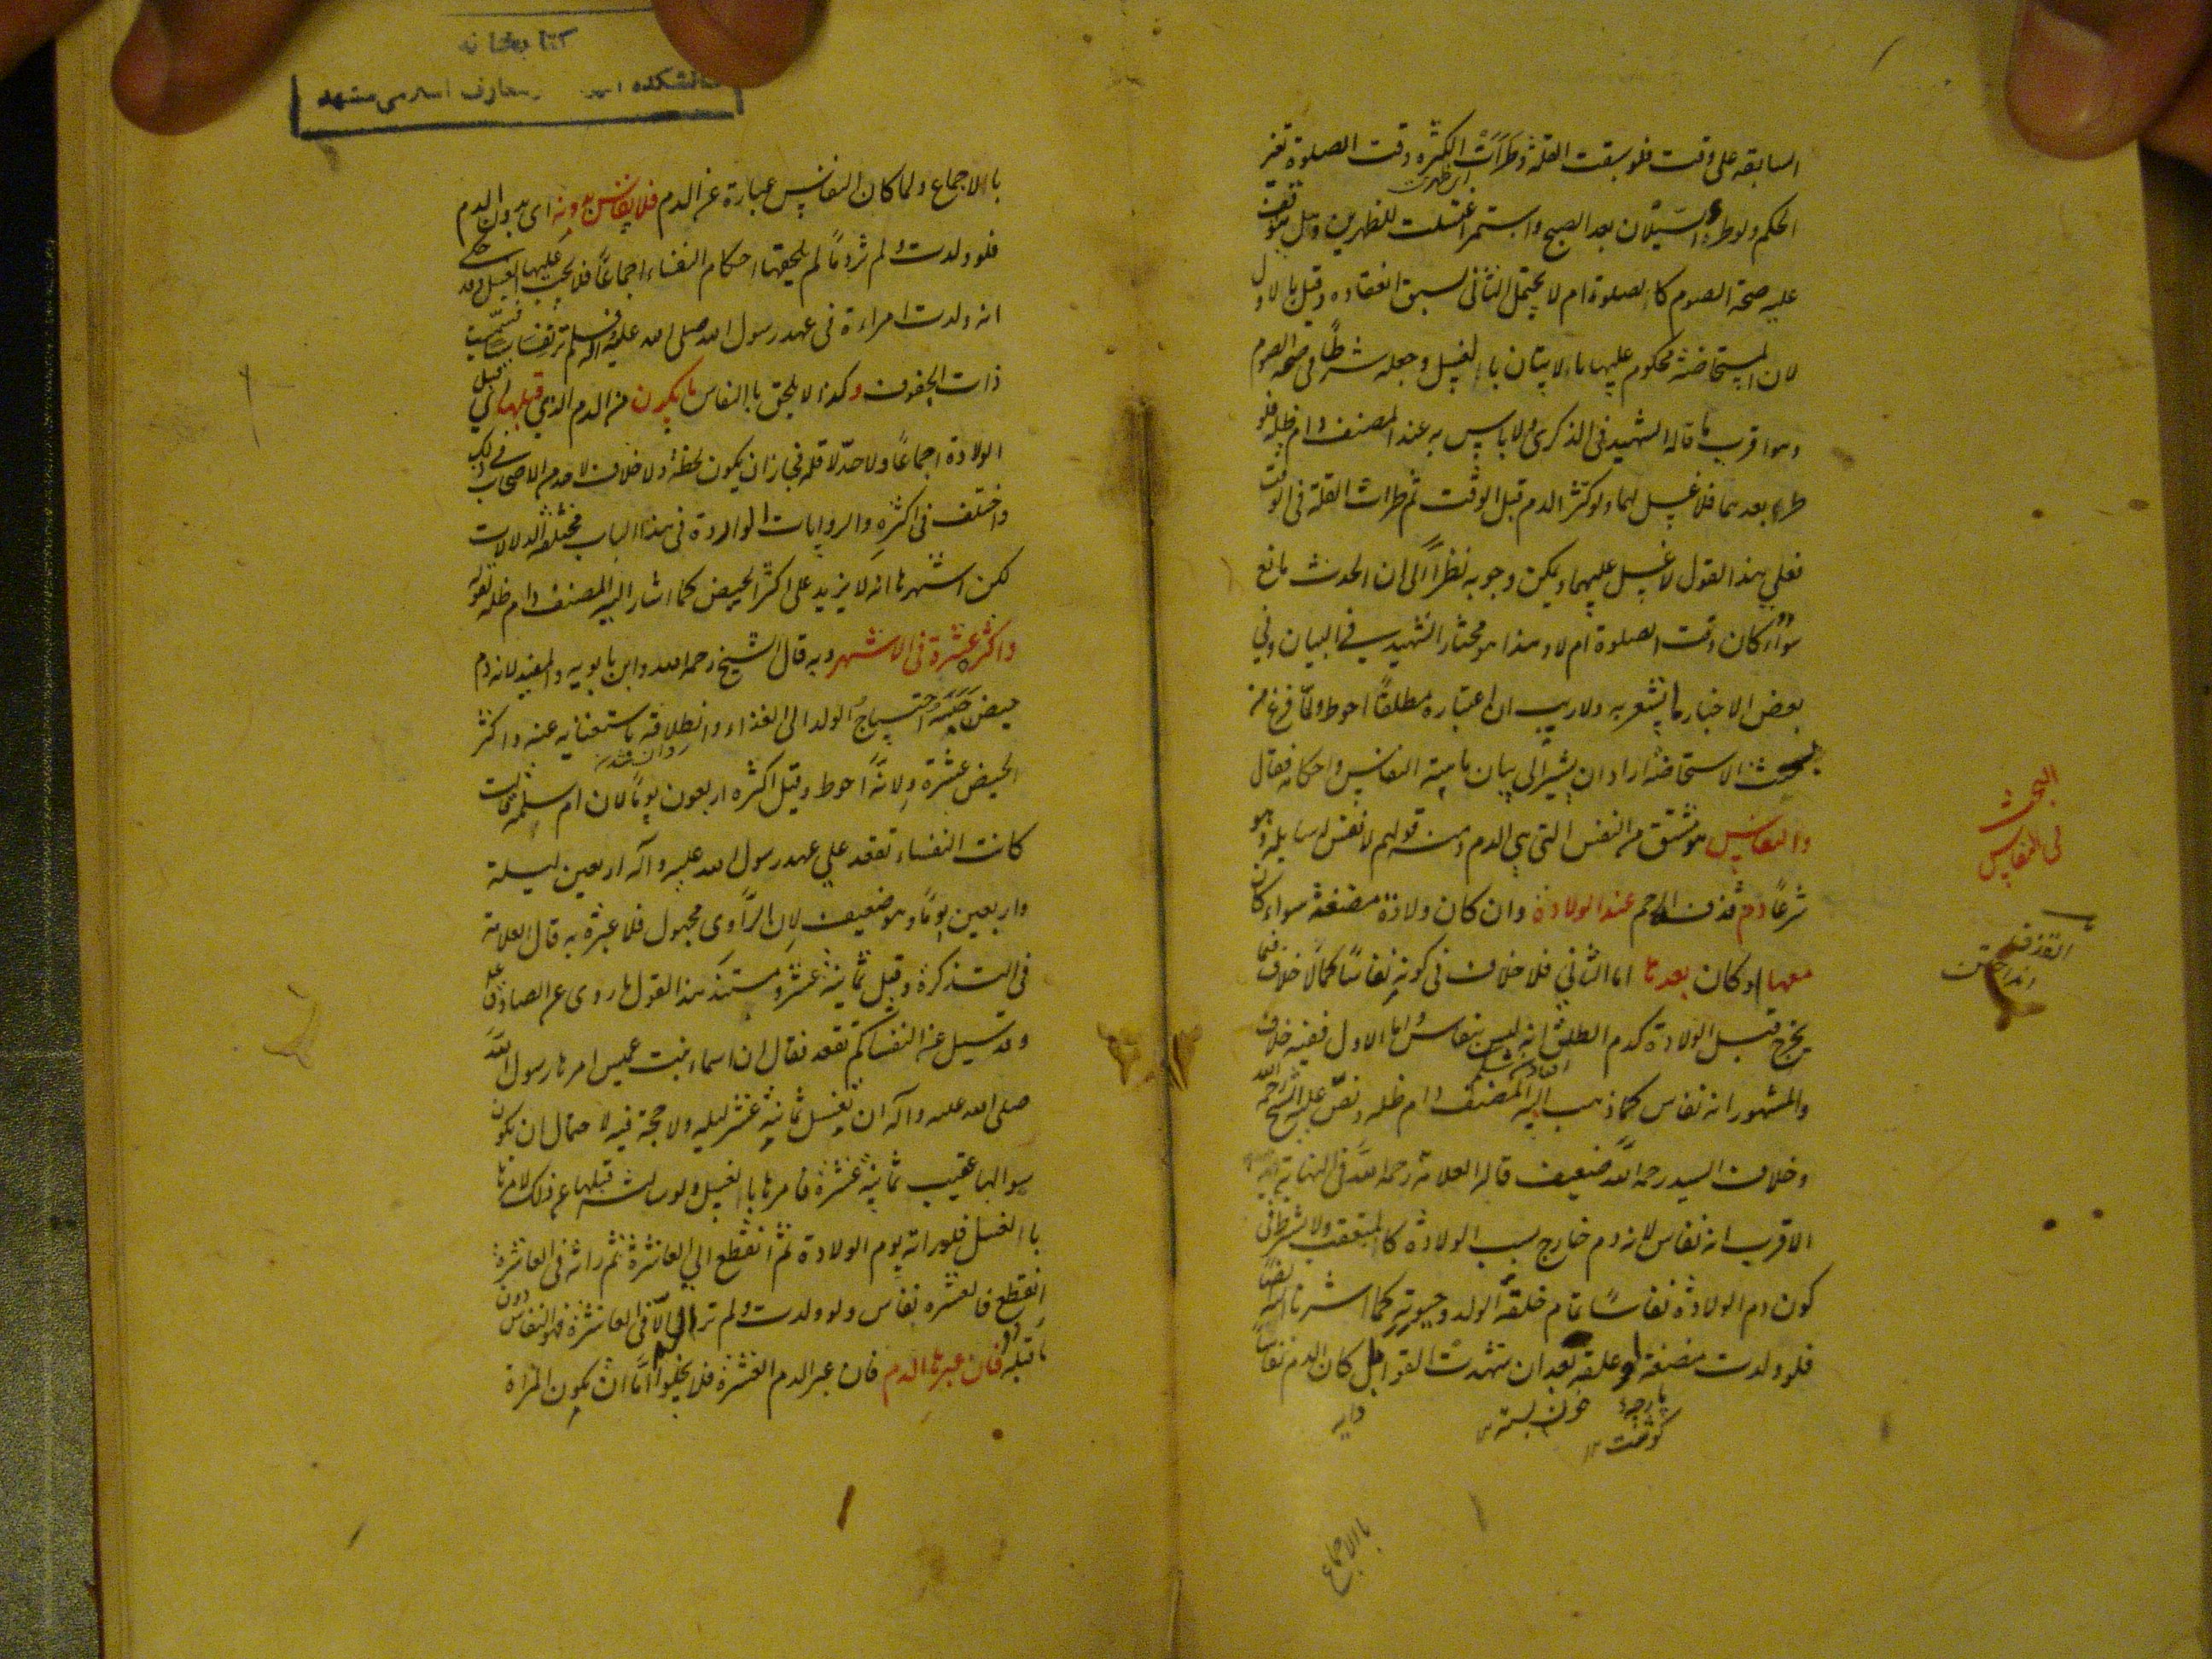 السابقه على وقت فلو سبقت القلة وطرأت الكثره وقت الصلوة تغير
الحكم ولو طرء السيلان بعد الصبح واستمر اغتسلت للظهرين وهل يتوقف
عليه صحة الصوم كالصلوة ام لا يحتمل الثانى لسبق انعقاده وقيل بالاول
لان المستحاضة محكوم عليها بالاتيان بالغسل وجعله شرطًا فى صحة الصوم
وهو اقرب ما قاله الشهيد فى الذكرى ولا باس به عند المصنف دام ظله فلو
طرء بعدهما فلا غسل لهما ولو كثر الدم قبل الوقت ثم طرات القلة فى الوقت
فعلى هذا القول لا غسل عليهما ويمكن وجوبه نظرًا الى ان الحدث مانع
سواء كان وقت الصلوة ام لا وهذا هو مختار الشهيد فى البيان وفى
بعض الاخبار ما يشعر به ولا ريب ان اعتباره مطلقًا احوط ولما فرغ من
بحث الاستحاضة اراد ان يشير الى بيان ماهية النفاس واحكامه فقال
والنفاس هو مشتق من النفس التى هى الدم ومنه قولهم لا نفس له سايلة وهو
شرعًا دم قذفه الرحم عند الولادة وان كان ولادة مضغة سواء كان
معها او كان بعدها اما الثانى فلا خلاف فى كونه نفاسًا كما لا خلاف فيما
يخرج قبل الولادة كدم الطلق انه ليس بنفاس واما الاول ففيه خلاف
والمشهور انه نفاس كما ذهب اليه المصنف دام ظله ونص عليه الشيخ رحمه الله
وخلاف السيد رحمه الله ضعيف قاله العلامة رحمه الله فى النهاية
الاقرب انه نفاس لانه دم خارج بسبب الولادة كالمتعقب ولا يشترط فى
كون دم الولادة نفاسًا تمام خلقة الولد وحيوته كما اشرنا اليه
فلو ولدت مضغة او علقة بعد ان شهدت القوابل كان الدم نفاسًا
پارچه گوشت
خون بسته
دايه
بالاجماع
البحث
فى النفاس
القذف
انداختن
كتابخانه
دانشكده معارف اسلامى مشهد
بالاجماع ولما كان النفاس عبارة عن الدم فلا نفاس بدونه اى بدون الدم
فلو ولدت ولم تر دمًا لم يلحقها احكام النفساء اجماعًا فلا يجب عليها الغسل وقد حكى
انه ولدت امراءة فى عهد رسول الله صلى الله عليه وآله وسلم فلم تر نفاسًا فسميت
ذات الجفوف وكذا لا يلحق بالنفاس ما يكون من الدم الذى قبلها اى قبل
الولادة اجماعًا ولا حد لاقله فجاز ان يكون لحظة ولا خلاف لاحد من الاصحاب فى ذلك
واختلف فى اكثره والروايات الواردة فى هذا الباب مختلفة الدلالات
لكن اشتهرها انه لا يزيد على اكثر الحيض كما اشار اليه المصنف دام ظله بقوله
واكثره عشرة فى الاشهر وبه قال الشيخ رحمه الله وابن بابويه والمفيد لانه دم
حيض حبسه احتياج الولد الى الغذاء وانطلاقه باستغنايه عنه واكثر
الحيض عشرة ولانه احوط وقيل اكثره اربعون يومًا لان ام سلمة قالت
كانت النفساء تقعد على عهد رسول الله عليه وآله اربعين ليلة
واربعين يومًا وهو ضعيف لان الراوى مجهول فلا عبرة به قال العلامة
فى التذكرة وقيل ثمانية عشر ومستند هذا القول ما روى عن الصادق ع
وقد سيل عن النفساء كم تقعد فقال ان اسماء بنت عميس امرها رسول الله
صلى الله عليه وآله ان تغتسل ثمانية عشر ليله ولا حجة فيه لاحتمال ان يكون
سوالها عقيب ثمانية عشرة فامرها بالغسل ولو سالته قبلها عن ذلك لامرها
بالغسل فلو راته يوم الولادة ثم انقطع الى العاشرة ثم راته فى العاشرة
انقطع فالعشره نفاس ولو ولدت ولم تر الدم الا فى العاشرة فهو النفاس دون
ما قبله فان عبرها الدم فان عبر الدم العشرة فلا يخلوا اما ان يكون المراة